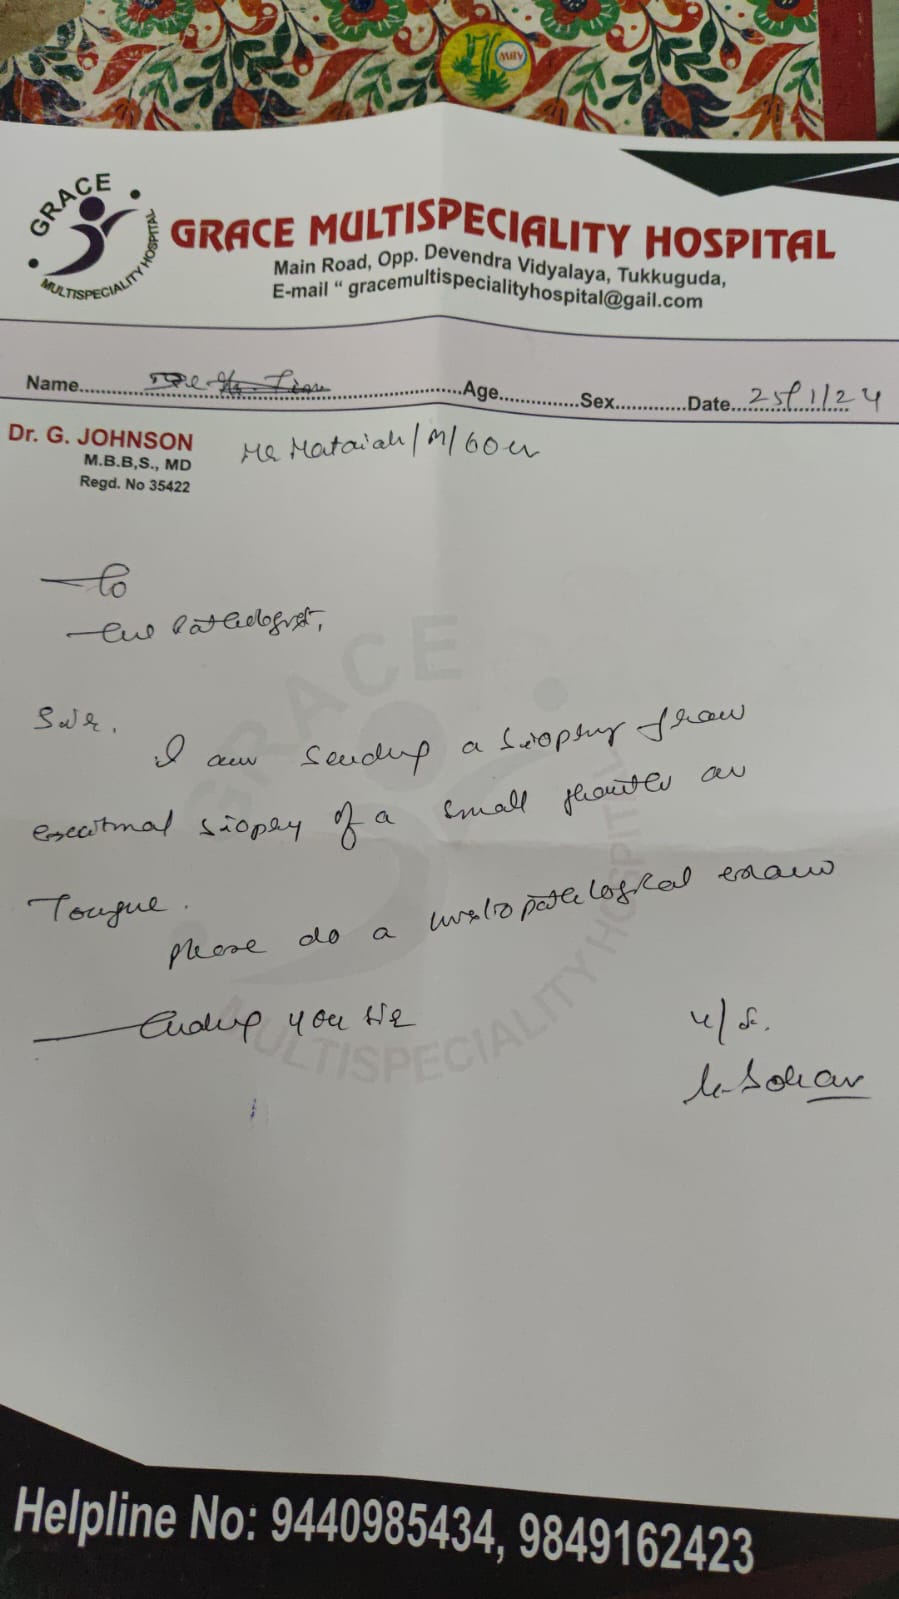 MRV
GRACE
MULTISPECIALITY HOSPITAL
GRACE MULTISPECIALITY HOSPITAL
Main Road, Opp. Devendra Vidyalaya, Tukkuguda,
E-mail “ gracemultispecialityhospital@gail.com
Name............Age............Sex............Date...25/1/24
Dr. G. JOHNSON
M.B.B,S., MD
Regd. No 35422
Mr Mataiah/M/60
To
the Pathologist,
Sir,
I am sending a biopsy from
excisional biopsy of a small growth on
Tongue.
please do a histopathological exam
Thanking you sir
GRACE
MULTISPECIALITY HOSPITAL
Helpline No: 9440985434, 9849162423